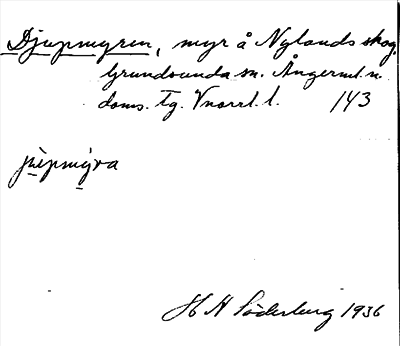 Djupmyren, myr å Nylands skog,
Grundsunda sn. Ångerml. n.
doms. Tg. Vnorrl. l. 143
jùpmýra
H H Söderberg 1936